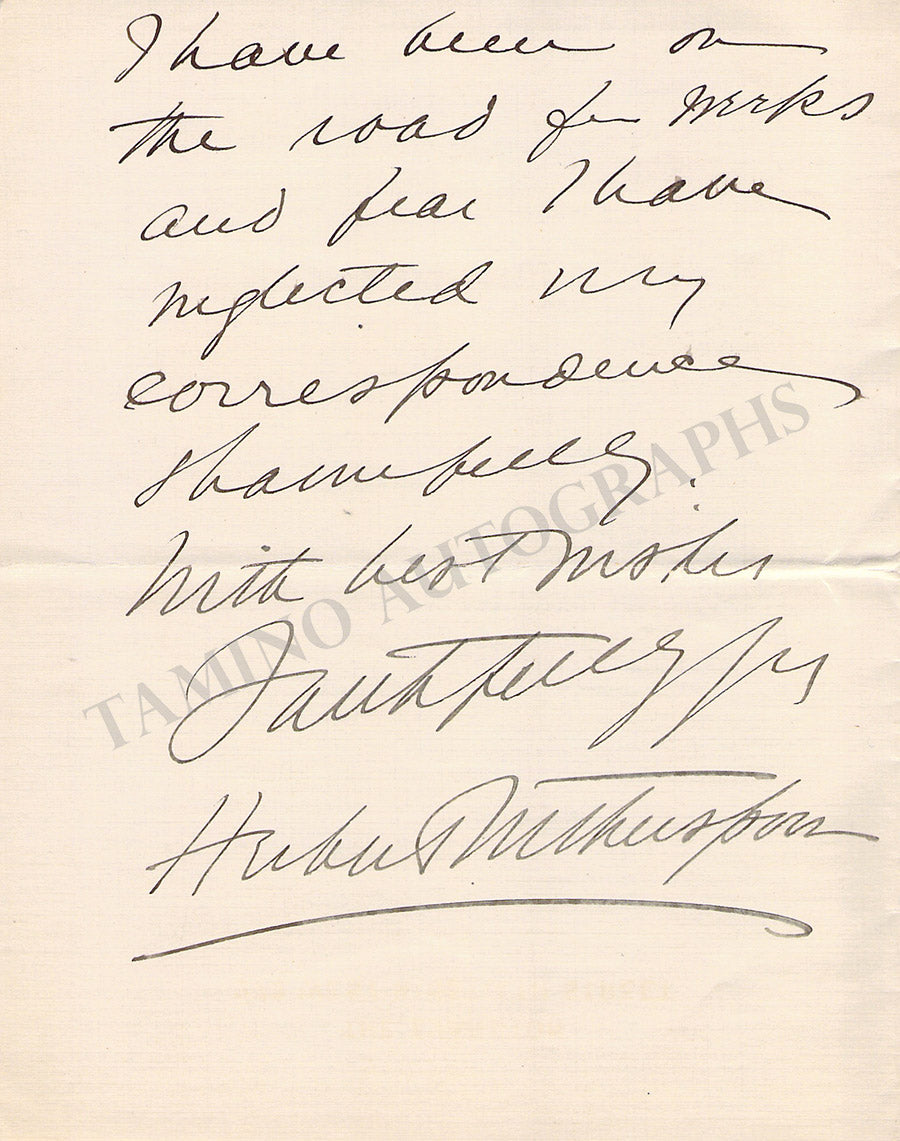 I have been on
the road for weeks
and fear I have
neglected my
correspondence
shamefully.
With best wishes
Faithfully yrs
Herbert Witherspoon
TAMINO AUTOGRAPHS